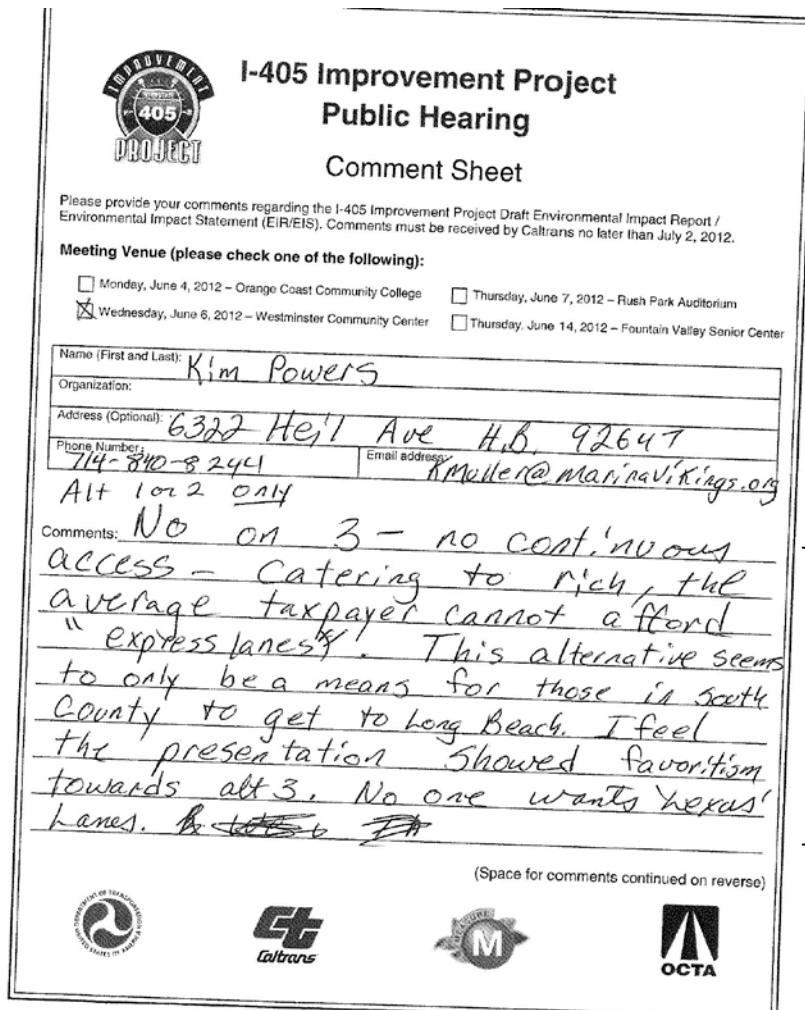 IMPROVEMENT
405
PROJECT
I-405 Improvement Project
Public Hearing
Comment Sheet
Please provide your comments regarding the I-405 Improvement Project Draft Environmental Impact Report /
Environmental Impact Statement (EIR/EIS). Comments must be received by Caltrans no later than July 2, 2012.
Meeting Venue (please check one of the following):
Monday, June 4, 2012 – Orange Coast Community College
Thursday, June 7, 2012 – Rush Park Auditorium
Wednesday, June 6, 2012 – Westminster Community Center
Thursday, June 14, 2012 – Fountain Valley Senior Center
Name (First and Last): Kim Powers
Organization:
Address (Optional): 6322 Heil Ave H.B. 92647
Phone Number: 714-840-8244
Email address: KMuller@marinavikings.org
Alt 1 or 2 only
Comments: No on 3 – no continuous
access – Catering to rich, the
average taxpayer cannot afford
"express lanes". This alternative seems
to only be a means for those in South
County to get to Long Beach. I feel
the presentation showed favoritism
towards alt 3. No one wants 'Lexus'
Lanes.
(Space for comments continued on reverse)
DEPARTMENT OF TRANSPORTATION
UNITED STATES OF AMERICA
Caltrans
MEASURE
M
OCTA